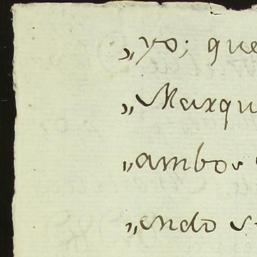 „yo; que
„Marqu
„ambos
„endo s